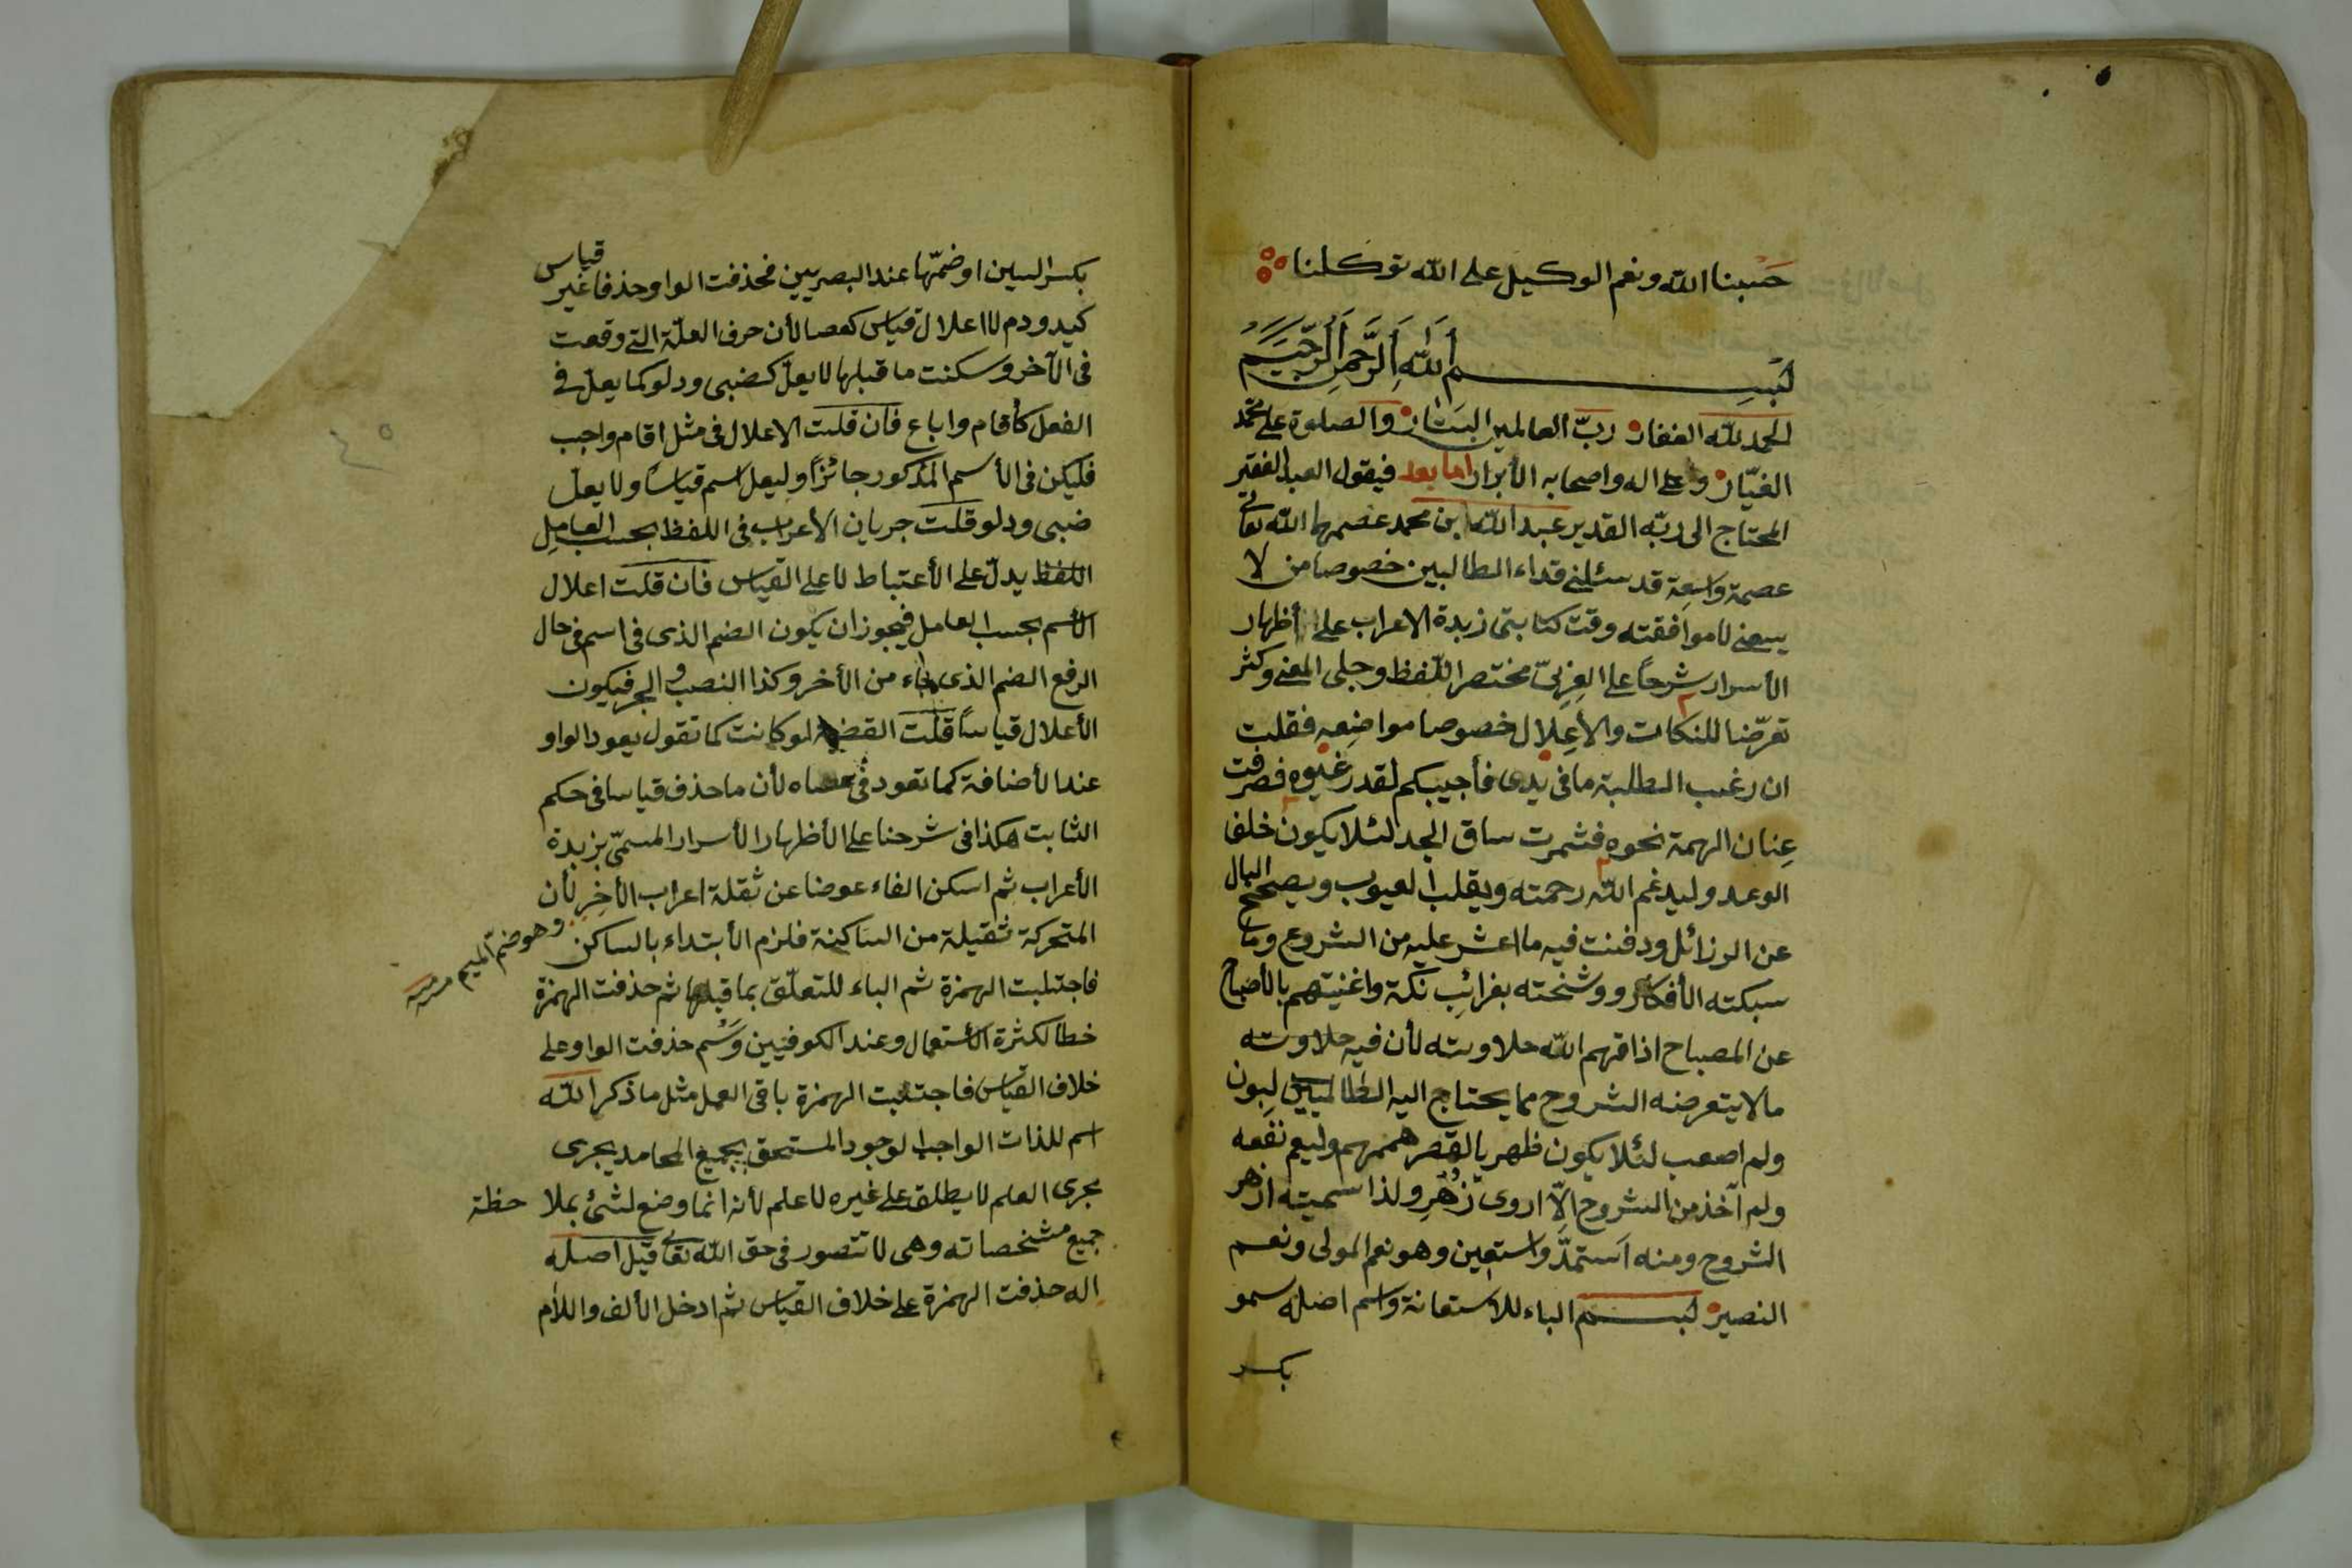 حسبنا الله ونعم الوكيل على الله توكلنا
بسم الله الرحمن الرحيم
الحمد لله الغفار رب العالمين الستار والصلوة على محمد
الغيار وعلى اله واصحابه الأبرار اما بعد فيقول العبد الفقير
المحتاج الى ربه القدير عبد الله ابن محمد عصمهما الله تعالى
عصمة واسعة قد سئلنى قداء الطالبين خصوصا من لا
يسعنى لا موافقته وقت كتابتى زبدة الاعراب على أظهار
الأسرار شرحاً على العزىّ مختصر اللفظ وجلى المعنى وكثر
تعرّضا للنكات والأعلال خصوصا مواضعه فقلت
ان رغب الطلبة ما فى يدى فأجيبكم لقدر فصرفت
عنان الهمة نحوه فشمرت ساق الجد لئلا يكون خلف
الوعد وليدغم الله رحمته ويقلب العيوب ويصحح البال
عن الرزائل ودفنت فيه ما اعثر عليه من الشروح وما
سبكته الأفكار ووشحته بغرائب نكة واغنيتهم بالأصباح
عن المصباح اذاقهم الله حلاوته لأن فيه حلاوته
ما لا يتعرضه الشروح مما يحتاج اليه الطالبون
ولم اصعب لئلا يكون ظهر بالقصر هممهم وليعم نفعه
ولم آخذ من الشروح الّا اروى زُهْرٍ ولذا سميته ازهر
الشروح ومنه استمدّ واستعين وهو نعم المولى ونعم
النصير بسم الباء للاستعانة واسم اصله سمو
بكسر
بكسر السين او ضمّها عند البصريين فحذفت الواو حذفا غير قياس
كيد ودم لا اعلال قياس كعصا لأن حرف العلّة التى وقعت
فى الآخر وسكنت ما قبلها لا يعلّ كضبى ودلو كما يعلّ فى
الفعل كأقام واباع فان قلت الاعلال فى مثل اقام واجب
فليكن فى الأسم المذكور جائزاً وليعل اسم قياساً ولا يعل
ضبى ودلو قلت جريان الأعراب فى اللفظ بحسب العامل
اللفظ يدلّ على الأعتباط لا على القياس فان قلت اعلال
الأسم بحسب العامل فيجوز ان يكون الضم الذى فى اسم فى حال
الرفع الضم الذى جاء من الأخر وكذا النصب والجر فيكون
الأعلال قياساً قلت القضية لو كانت كما تقول يعود الواو
عند الأضافة كما تعود فى عصاه لأن ما حذف قياسا فى حكم
الثابت هكذا فى شرحنا على الأظهار الأسرار المسمّى بزبدة
الأعراب ثم اسكن الفاء عوضا عن ثقلة اعراب الأخر لأن
المتحركة ثقيلة من الساكنة فلزم الأبتداء بالساكن
وهو ضم الميم
فاجتلبت الهمزة ثم الباء للتعلّق بما قبلها ثم حذفت الهمزة
خطا لكثرة الأستعمال وعند الكوفيين وَسْم حذفت الواو على
خلاف القياس فاجتلبت الهمزة باقى العمل مثل ما ذكر الله
اسم للذات الواجب الوجود المستحق بجميع المحامد يجرى
مجرى العلم لا يطلق على غيره لا علم لأنه انما وضع لشئ بملا حظة
جميع مشخصاته وهى لا تتصور فى حق الله تعالى قيل اصله
اله حذفت الهمزة على خلاف القياس ثم ادخل الألف واللام